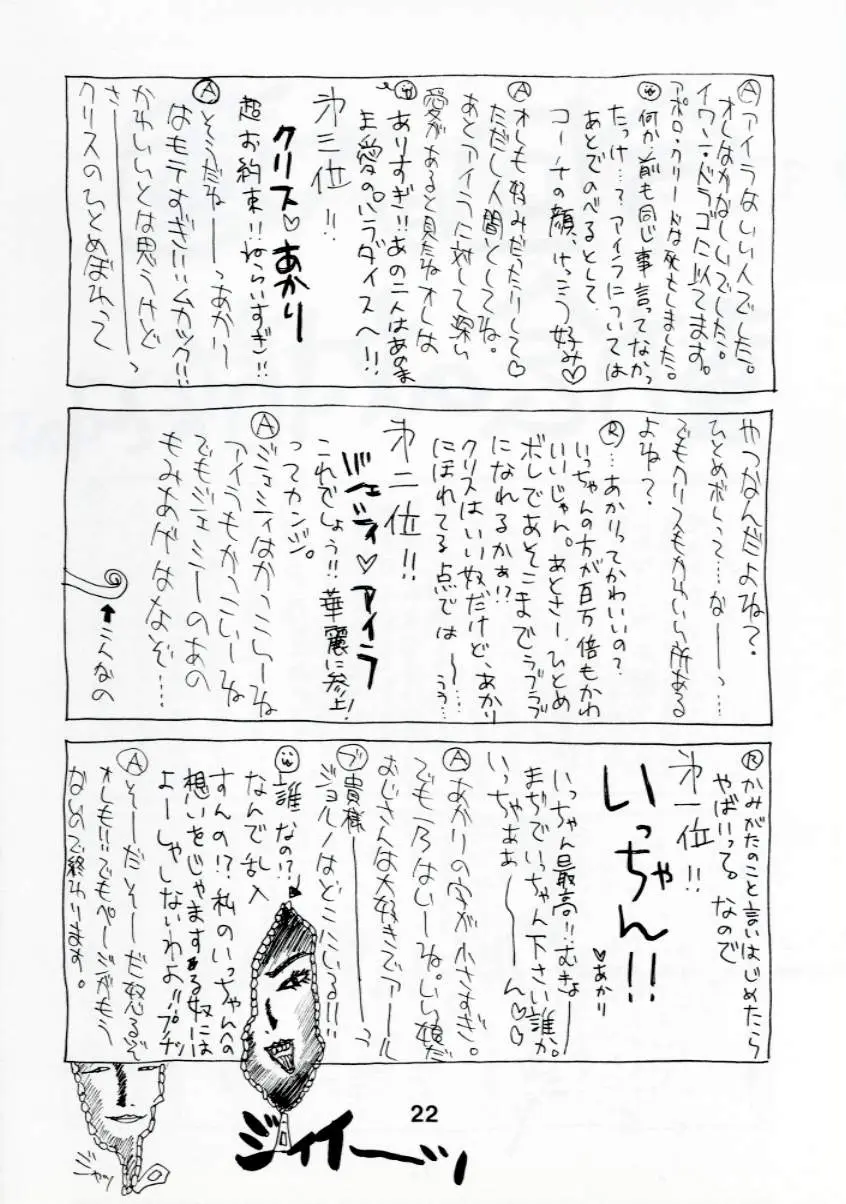 Ⓐアイラはいい人でした。
オレはかなしいでした。
イワン・ドラゴに似てます。
アポロ・クリードは死にもしました。
何か前も同じ事言ってなかっ
たっけ…?アイラについては
あとでのべるとして、
コーナの顔、けっこう好み♡
Ⓐオレも好みだったりして♡
ただし人間としてね。
あとアイラに対して深い
愛があると見たねオレは
ありすぎ!!あの二人はあのまま
愛のパラダイスへ!!
第三位!!
クリス♡あかり
超お約束!!ねらいすぎ!!
Ⓐそうだねーーっあかり
はモテすぎ!!!ムカツク!!!
かわいいとは思うけど
さーーーーーっ
クリスのひとめぼれって
やつなんだよね?
ひとめボレって…なーーっ…
でもクリスもかわいい所ある
よね?
Ⓡ…あかりってかわいいの?
いっちゃんの方が百万倍もかわ
いいじゃん。あとさー、ひとめ
ボレであそこまでラブラブ
になれるかぁ!?
クリスはいい奴だけど、あかり
にほれてる点では〜〜…
ううっ…
第二位!!
ジェシィ♡アイラ
これでしょう!!華麗に参上!
ってカンジ。
Ⓐジェシィはかっこいーね
アイラもかっこいーね
でもジェシーのあの
もみあげはなぞ…
↑こんなの
Ⓡかみがたのこと言いはじめたら
やばいって。なので
第一位!!
いっちゃん!!
♡あかり
いっちゃん最高!!むきょーー
まぢでいっちゃん下さい誰か。
いっちゃぁぁーーーん♡♡
Ⓐあかりの字が小さすぎ。
でも一乃はいーね。いい娘だ
おじさんは大好きでアール
ブ貴様ーーーーーっ
ジョルノはどこにいる!!!
誰なの!?
なんで乱入
すんの!?私のいっちゃんへの
想いをじゃまする奴には
よーしゃしないわよ!!プチッ
Ⓐそーだそーだ怒るぞ
オレも!!でもページがもう
ないので終わります。
ジャッ
ジイイーッ
22